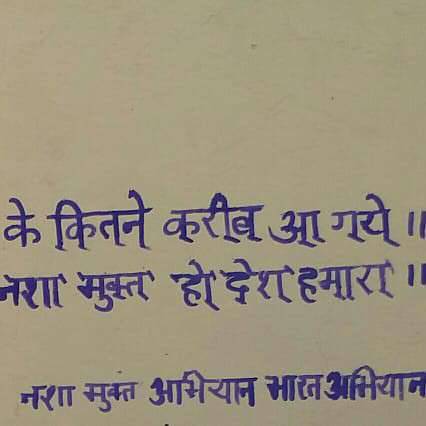 के कितने करीब आ गये ॥
नशा मुक्त हो देश हमारा ॥
नशा मुक्त अभियान भारत अभियान